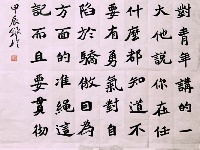 對青年講的一
大他說你在任
什麼都知道不
要勇氣對自
陷於驕傲因為
方面的准繩這
記而且要貫彻
甲辰